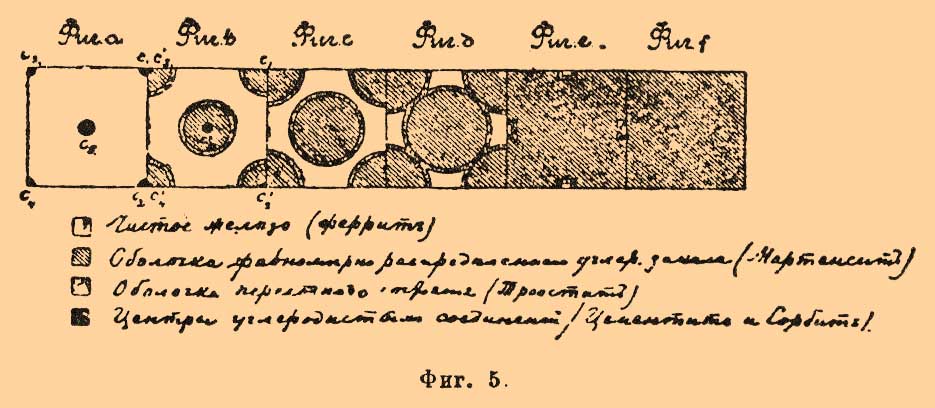 Фиг. a Фиг. b Фиг. c Фиг. d Фиг. e. Фиг. f
C₃ C₁ C₃' C₁
C₂
C₄ C₂ C₄' C₂'
Чистое железо (ферритъ)
Оболочка равномѣрно распредѣленнаго углер. закала (Мартенситъ)
Оболочка переходнаго (Трооститъ)
Центры углеродистыхъ соединений (Цементитъ и Сорбитъ).
Фиг. 5.